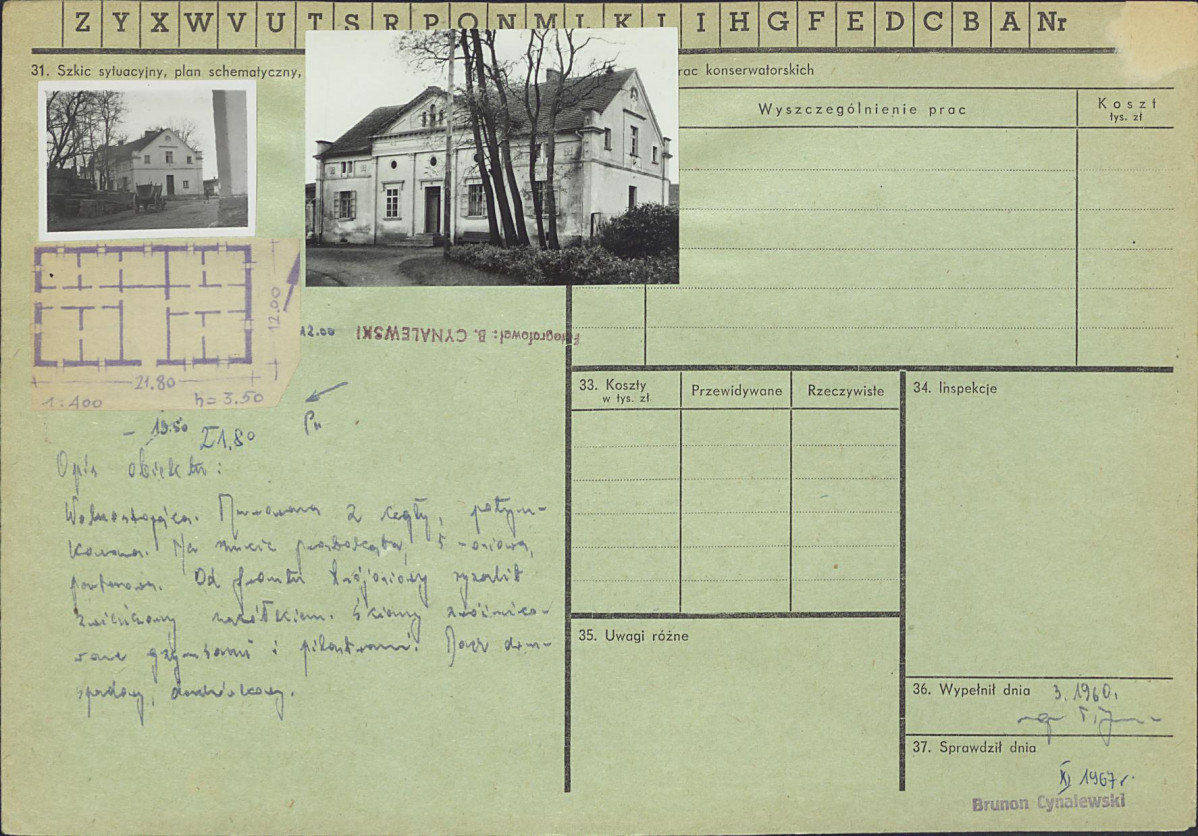 Z Y X W V U T S R P O N M L K J I H G F E D C B A Nr
31. Szkic sytuacyjny, plan schematyczny,
rac konserwatorskich
Wyszczególnienie prac
Koszt
tys. zł
12.00
21.80
1:400 h=3.50
12.00
Fotografował: B. CYNALEWSKI
19.50 21,80
Pn
Opis obiektu:
Wolnostojąca. Murowana z cegły, potyn-
kowana. Na rzucie prostokąta, 5-osiowa,
parterowa. Od frontu trójosiowy ryzalit
zwieńczony szczytkiem. Ściany rozczłonko-
wane gzymsami i pilastrami. Dach dwu-
spadowy, dachówkowy.
33. Koszty
w tys. zł
Przewidywane
Rzeczywiste
34. Inspekcje
35. Uwagi różne
36. Wypełnił dnia 3.1960.
mgr
37. Sprawdził dnia
XI 1967r.
Brunon Cynalewski